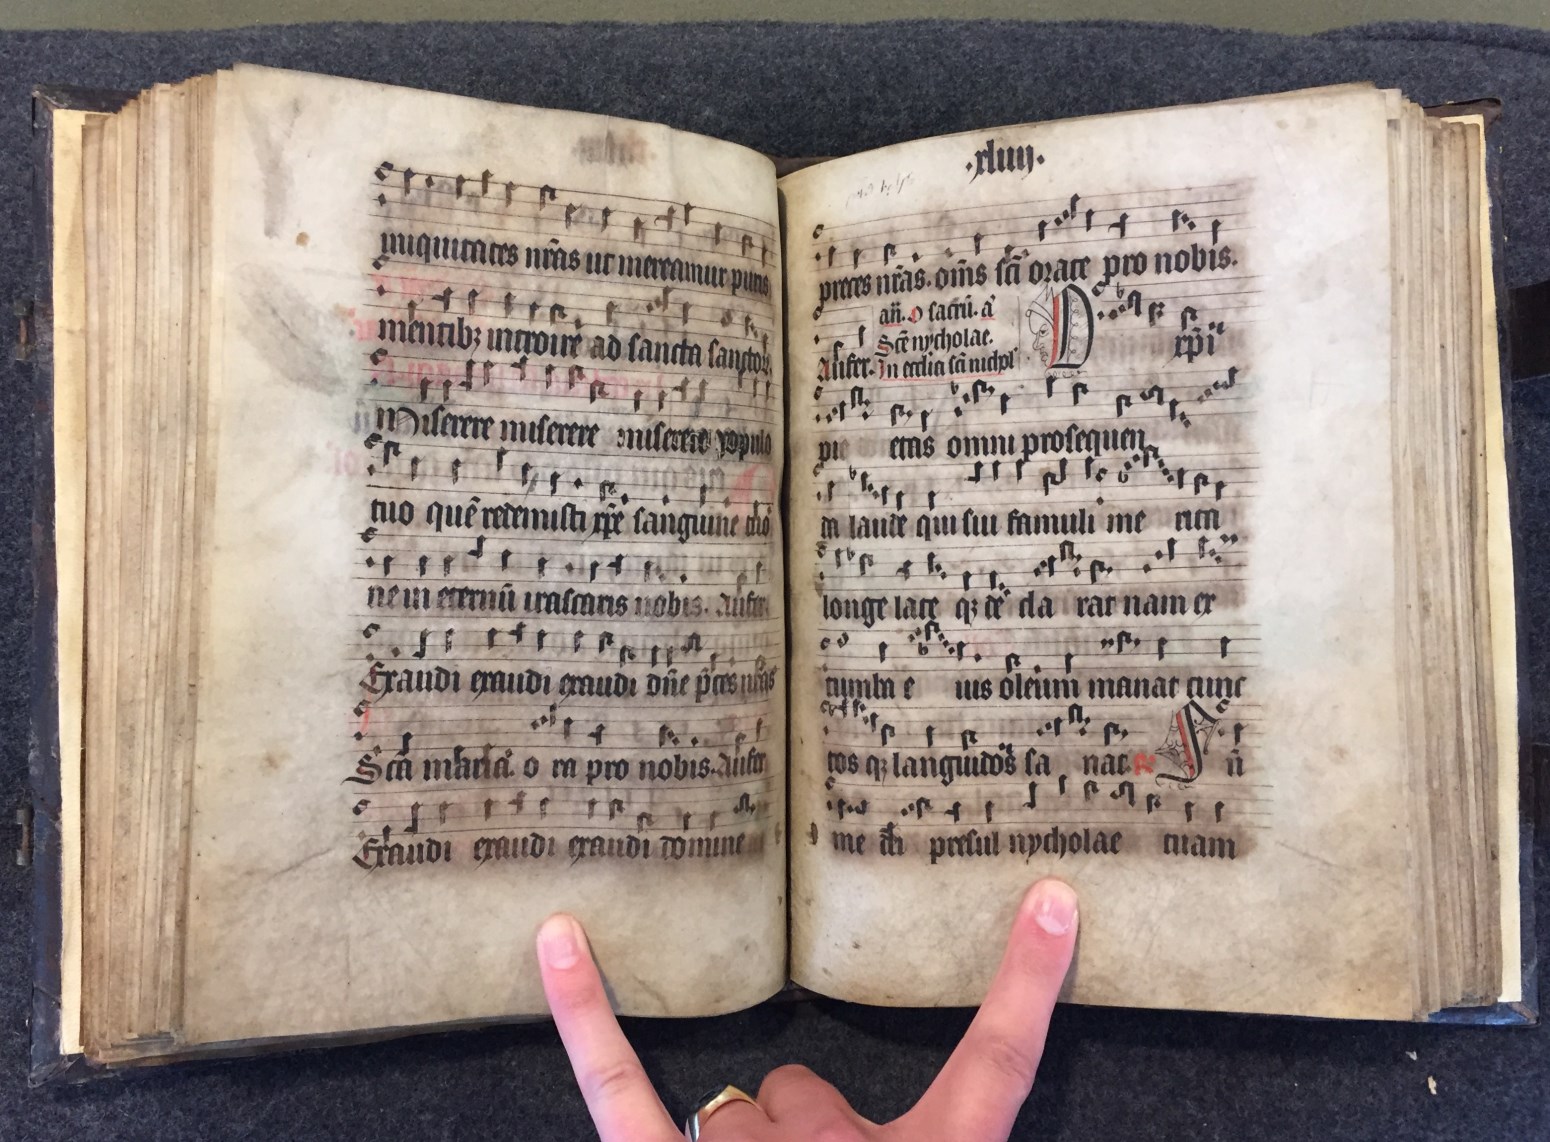 iniquitates nr̄as ut mereamur puris
mentibꝫ introire ad sancta sanctoꝝ
Miserere miserere miserere populo
tuo quē redemisti xp̄e sanguine tuo
ne in eternū irascaris nobis. Aufer
Exaudi exaudi exaudi dn̄e p̄ces nr̄as
Scā maria. o ra pro nobis. Aufer
Exaudi exaudi exaudi domine
.xliiij.
preces nr̄as. om̄s sc̄i orate pro nobis.
an̄. O sacrū. a
Sc̄e nycholae.
Aufer. In ecclia sc̄i nichol
D xp̄i
pie etas omni prosequen
da laude qui sui famuli me rita
longe late qꝫ de cla rat nam ex
tumba e ius oleum manat cunc
tos qꝫ languidos sa nat. V I ū
me di presul nycholae tuam